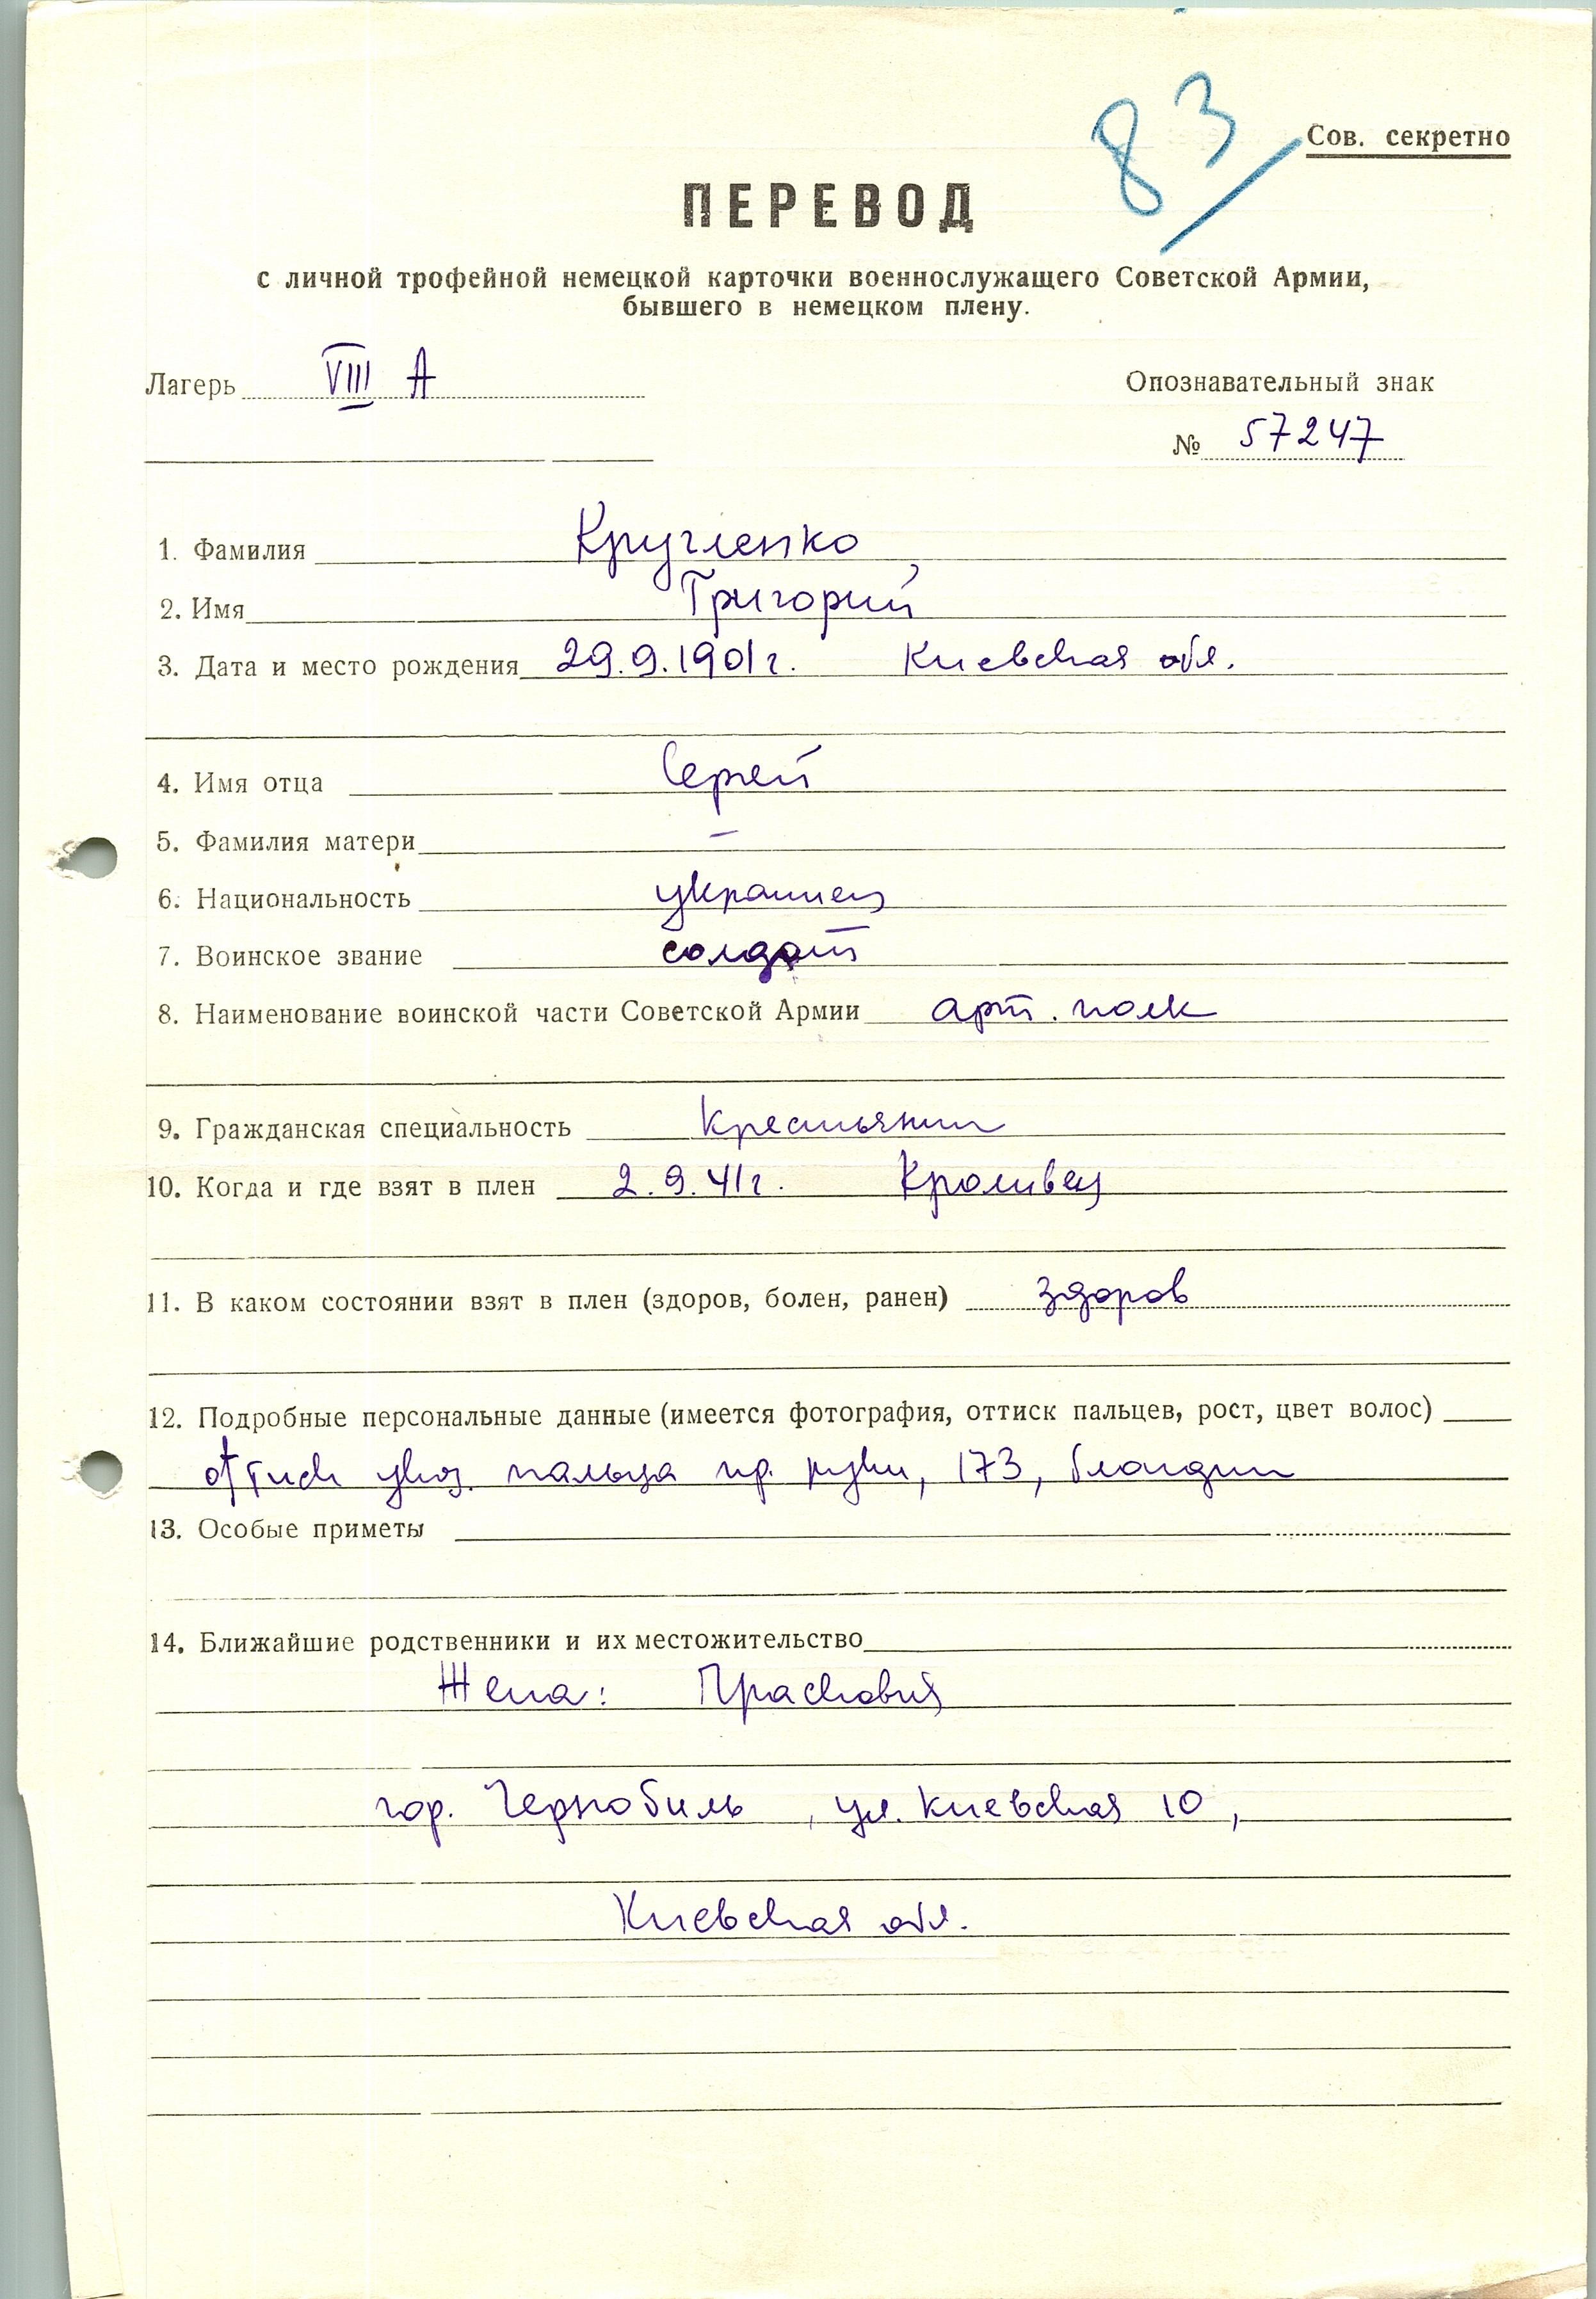 83
Сов. секретно
ПЕРЕВОД
с личной трофейной немецкой карточки военнослужащего Советской Армии,
бывшего в немецком плену.
Лагерь VIII А
Опознавательный знак
№ 57247
1. Фамилия Кругленко
2. Имя Григорий
3. Дата и место рождения 29.9.1901г. Киевская обл.
4. Имя отца Сергей
5. Фамилия матери –
6. Национальность украинец
7. Воинское звание солдат
8. Наименование воинской части Советской Армии арт. полк
9. Гражданская специальность крестьянин
10. Когда и где взят в плен 2.9.41г. Кроливец
11. В каком состоянии взят в плен (здоров, болен, ранен) здоров
12. Подробные персональные данные (имеется фотография, оттиск пальцев, рост, цвет волос)
оттиск указ. пальца пр. руки, 173, блондин
13. Особые приметы
14. Ближайшие родственники и их местожительство
Жена: Прасковия
гор. Чернобиль, ул. Киевская 10,
Киевская обл.